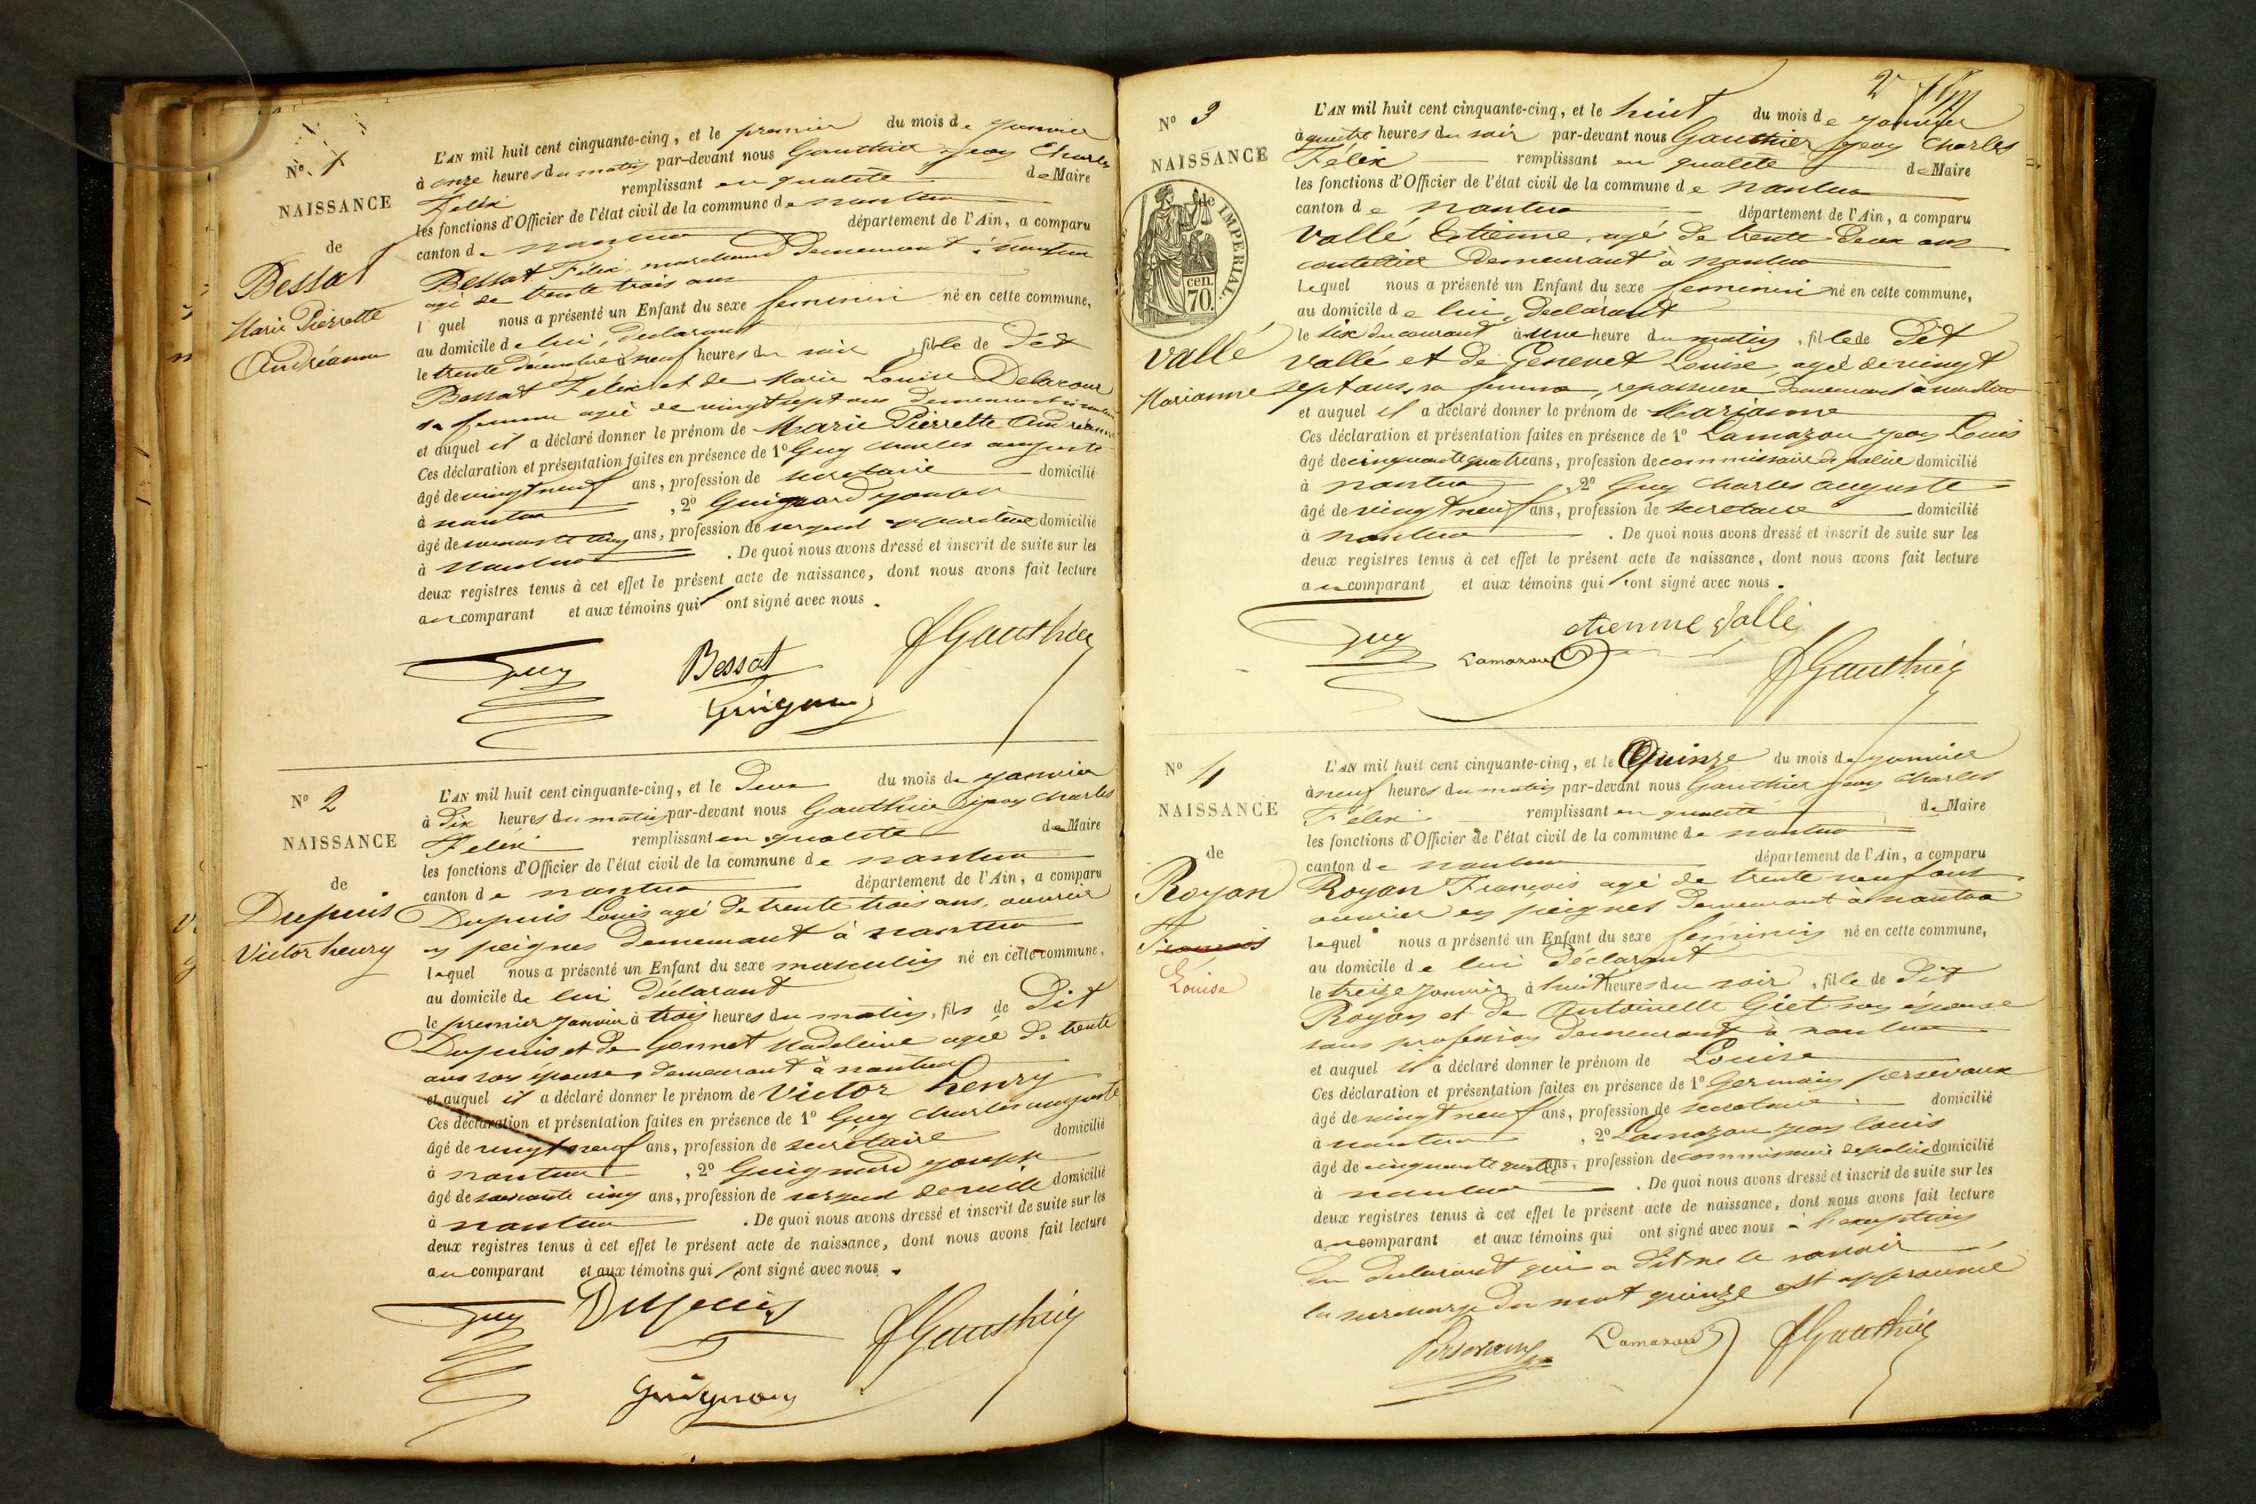 No. 1
NAISSANCE
de
Bessat
Marie Pierrette
Andréanne
L'AN mil huit cent cinquante-cinq, et le premier du mois de janvier
à onze heures du matin par-devant nous Gauthier Jean Charles
Félix remplissant en qualité de Maire
les fonctions d'Officier de l'état civil de la commune de nantua
canton de nantua département de l'Ain, a comparu
Bessat Félix marchand demeurant à nantua
agé de trente trois ans
l quel nous a présenté un Enfant du sexe feminin né en cette commune,
au domicile de lui, declarant
le trente décembre à neuf heures du soir, fille de dit
Bessat Felix et de Marie Louise Delacour
sa femme agée de vingt sept ans demeurant à nantua
et auquel il a déclaré donner le prénom de Marie Pierrette Andréanne
Ces déclaration et présentation faites en présence de 1º Guy Charles auguste
âgé de vingt neuf ans, profession de secretaire domicilié
à nantua, 2º Guignard Joseph
âgé de soixante cinq ans, profession de sergent domicilié
à nantua. De quoi nous avons dressé et inscrit de suite sur les
deux registres tenus à cet effet le présent acte de naissance, dont nous avons fait lecture
au comparant et aux témoins qui ont signé avec nous.
Guy Bessat Gauthier
Guignard
Nº 2
NAISSANCE
de
Dupuis
Victor henry
L'AN mil huit cent cinquante-cinq, et le Deux du mois de janvier
à dix heures du matin par-devant nous Gauthier jean Charles
Felix remplissant en qualité de Maire
les fonctions d'Officier de l'état civil de la commune de nantua
canton de nantua département de l'Ain, a comparu
Dupuis Louis agé de trente trois ans, ouvrier
en peignes demeurant à nantua
lequel nous a présenté un Enfant du sexe masculin né en cette commune,
au domicile de lui déclarant
le premier janvier à trois heures du matin, fils de Dit
Dupuis et de Gonnet Madeleine agée de trente
ans son épouse, demeurant à nantua
et auquel il a déclaré donner le prénom de Victor henry
Ces déclaration et présentation faites en présence de 1º Guy Charles auguste
âgé de vingt neuf ans, profession de secrétaire domicilié
à nantua, 2º Guignard Joseph
âgé de soixante cinq ans, profession de sergent de ville domicilié
à nantua. De quoi nous avons dressé et inscrit de suite sur les
deux registres tenus à cet effet le présent acte de naissance, dont nous avons fait lecture
au comparant et aux témoins qui ont signé avec nous.
Guy Dupuis Gauthier
Guignard
2
Nº 3
NAISSANCE
de
IMPERIAL.
cen.
70.
Vallé
Marianne
L'AN mil huit cent cinquante-cinq, et le huit du mois de janvier
à quatre heures du soir par-devant nous Gauthier Jean Charles
Félix remplissant en qualité de Maire
les fonctions d'Officier de l'état civil de la commune de nantua
canton de nantua département de l'Ain, a comparu
Vallé Etienne, agé de trente deux ans
coutellier demeurant à nantua
lequel nous a présenté un Enfant du sexe feminin né en cette commune,
au domicile de lui, declarant
le six du courant à une heure du matin, fille de Dit
Vallé et de Genevet Louise, agée de vingt
sept ans, sa femme, repasseuse demeurant à nantua
et auquel il a déclaré donner le prénom de Marianne
Ces déclaration et présentation faites en présence de 1º Lamazou jean Louis
âgé de cinquante quatre ans, profession de commissaire de police domicilié
à nantua, 2º Guy Charles auguste
âgé de vingt neuf ans, profession de secretaire domicilié
à nantua. De quoi nous avons dressé et inscrit de suite sur les
deux registres tenus à cet effet le présent acte de naissance, dont nous avons fait lecture
au comparant et aux témoins qui ont signé avec nous.
Guy Lamazou etienne Vallé
Gauthier
Nº 4
NAISSANCE
de
Royan
François
Louise
L'AN mil huit cent cinquante-cinq, et le Quinze du mois de janvier
à neuf heures du matin par-devant nous Gauthier jean Charles
Félix remplissant en qualité de Maire
les fonctions d'Officier de l'état civil de la commune de nantua
canton de nantua département de l'Ain, a comparu
Royan François agé de trente neuf ans
ouvrier en peignes demeurant à nantua
lequel nous a présenté un Enfant du sexe féminin né en cette commune,
au domicile de lui déclarant
le treize janvier à huit heures du soir, fille de Dit
Royan et de Antoinette Giet son épouse
sans profession demeurant à nantua
et auquel il a déclaré donner le prénom de Louise
Ces déclaration et présentation faites en présence de 1º Germain persevaux
âgé de vingt neuf ans, profession de secretaire domicilié
à nantua, 2º Lamazou jean Louis
âgé de cinquante quatre ans, profession de commissaire de police domicilié
à nantua. De quoi nous avons dressé et inscrit de suite sur les
deux registres tenus à cet effet le présent acte de naissance, dont nous avons fait lecture
au comparant et aux témoins qui ont signé avec nous à l'exception
du declarant qui a dit ne le savoir
la surcharge du mot quinze est approuvée
Persevaux Lamazou Gauthier